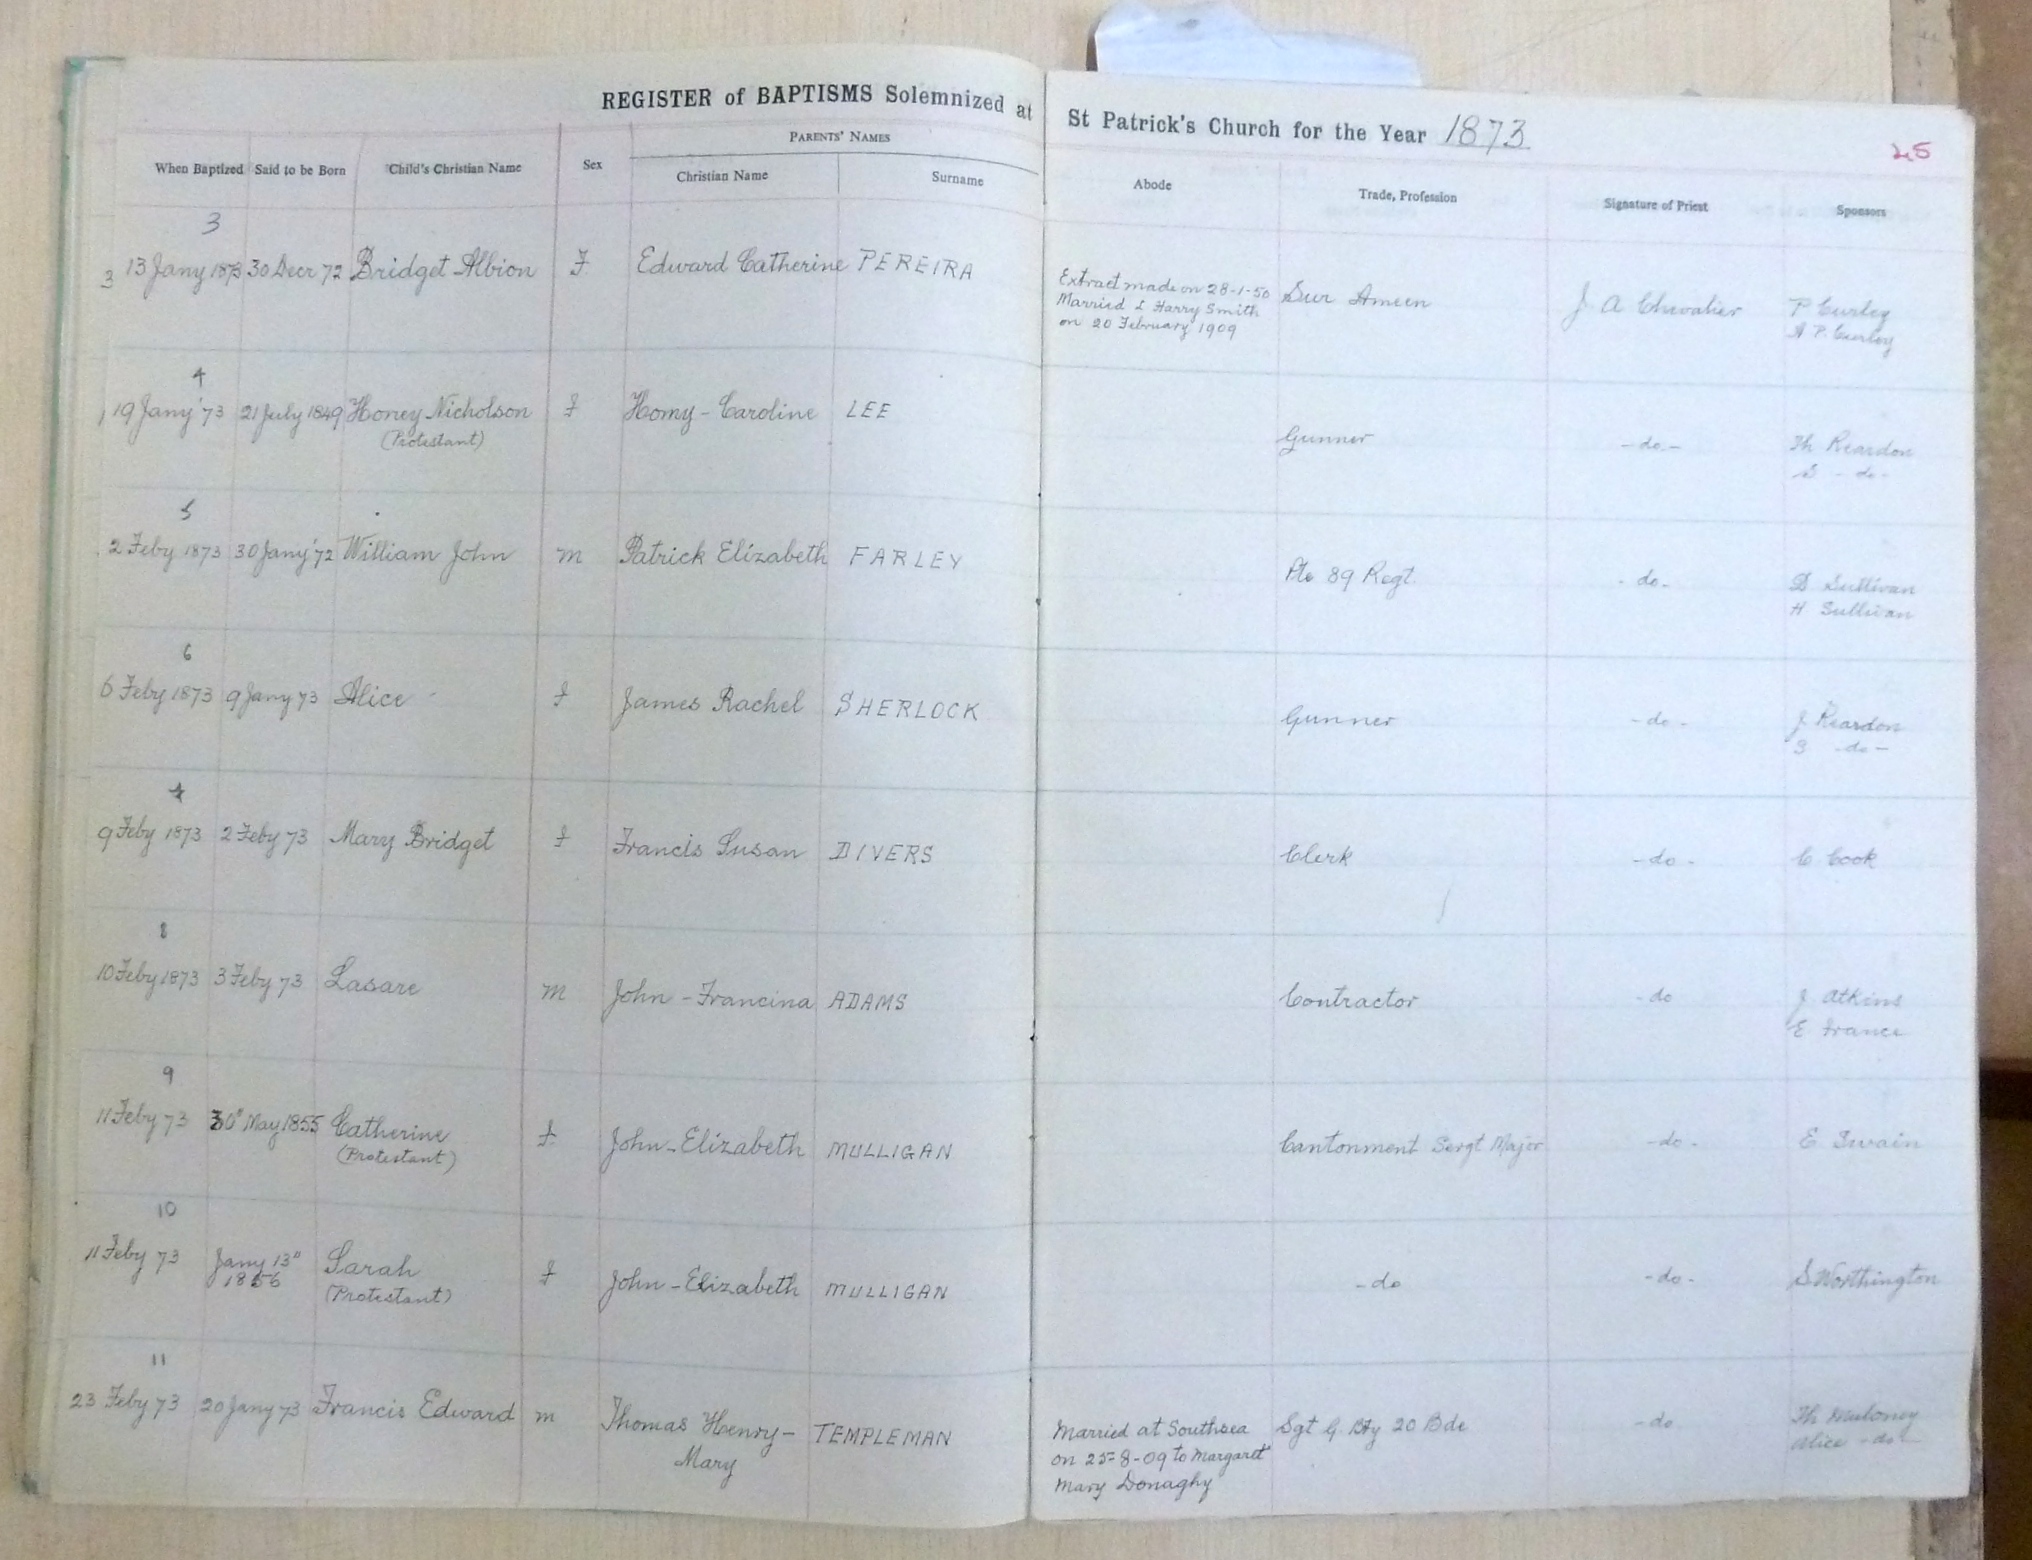 REGISTER of BAPTISMS Solemnized at St Patrick's Church for the Year 1873
45
PARENTS' NAMES
When Baptized Said to be Born Child's Christian Name Sex Christian Name Surname Abode Trade, Profession Signature of Priest Sponsors
3
3 13 Jany 1873 30 Decr 72 Bridget Albion F Edward Catherine PEREIRA Extract made on 28-1-50 Sur Ameen J A Chevalier P Curley
Married Harry Smith A P. Curley
on 20 February 1909
4
19 Jany '73 21 July 1849 Honey Nicholson f Homy - Caroline LEE Gunner - do - Th Reardon
(Protestant) S - do -
5
2 Feby 1873 30 Jany '72 William John m Patrick Elizabeth FARLEY Pte 89 Regt. - do - D Sullivan
H Sullivan
6
6 Feby 1873 9 Jany 73 Alice f James Rachel SHERLOCK Gunner - do - J Reardon
S - do -
7
9 Feby 1873 2 Feby 73 Mary Bridget f Francis Susan DIVERS Clerk - do - C Cook
8
10 Feby 1873 3 Feby 73 Lasare m John - Francina ADAMS Contractor - do J Atkins
E France
9
11 Feby 73 30" May 1855 Catherine f John - Elizabeth MULLIGAN Cantonment Sergt Major - do - E Swain
(Protestant)
10
11 Feby 73 Jany 13" Sarah f John - Elizabeth MULLIGAN - do - do - S Worthington
1856 (Protestant)
11
23 Feby 73 20 Jany 73 Francis Edward m Thomas Henry - TEMPLEMAN Married at Southsea Sgt G. Bty 20 Bde - do Th Muloney
Mary on 25-8-09 to Margaret Alice - do -
Mary Donaghy